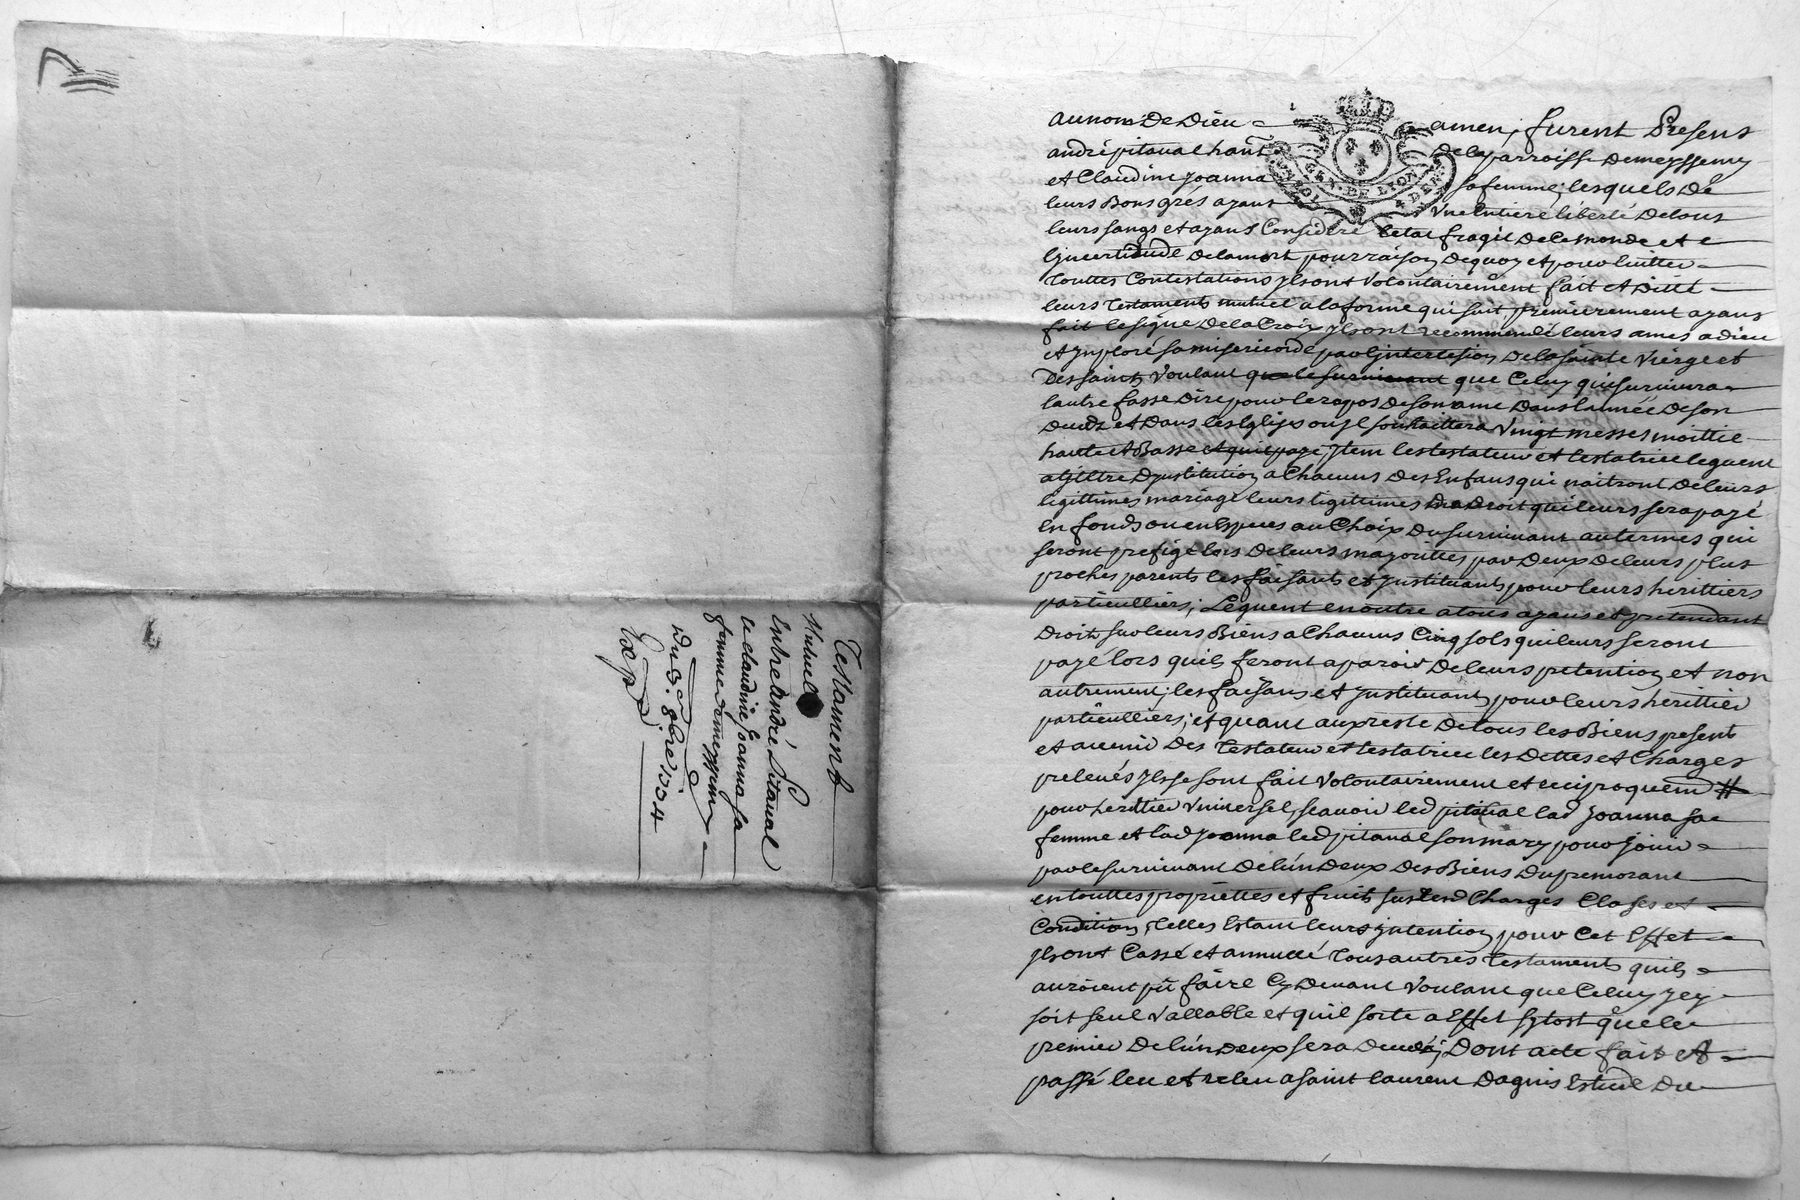 Testament
Mutuel
Entre andré Pitaval
et claudine Joanna sa
femme de meyssemy
du 3. 9bre 1704
Exp.
au nom De Dieu amen, furent Presens
andré pitaval hant De la parroisse De meyssemy
et Claudine Joanna sa femme, lesquels De
leurs Bons grés ayans Vne Entiere liberté De tous
leurs sangs et ayans Consideré letat fragil de ce monde et
lincertitude De la mort pour raison De quoy et pour Euitter
touttes Contestations ils ont Volontairement fait et Ditté
leurs testaments mutuel a la forme qui suit, premierement ayans
fait le signe De la Croix ils ont recommendé leurs ames a dieu
et Imploré sa misericorde par lintercession De la sainte Vierge et
Des saints Voulant que le suruiuant que Celuy qui suruiura
lautre fasse Dire pour le repos De son ame Dans lannée De son
Deceds et Dans les Eglises ou il souhaittera Vingt messes moittié
haute et Basse et qui paye, Item les testateur et testatrice leguent
a tiltre Dinstitution a Chacuns Des Enfans qui naitront De leurs
legittimes mariage leurs legittimes De Droit qui leurs sera payé
En fonds ou en Especes au Choix Du suruiuant au termes qui
seront prefigé lors De leurs mayorittés par Deux De leurs plus
proches parents les faisants et Instituant pour leurs herittiers
particulliers, Leguent en outre a tous ayans et pretendant
Droit sur leurs Biens a Chacuns Cinq sols qui leurs seront
payé lors quils feront aparoir De leurs pretention et non
autrement, les faisans et Instituant pour leurs herittier
particulliers, et quant au preste De tous les Biens present
et auenir Des testateur et testatrice les Dettes et Charges
preleués Ils se sont fait Volontairement et reciproquem
pour herittier Vniuersel scauoir led pitaval lad Joanna sa
femme et lad Joanna led pitaval son mary pour Jouir
par le suruiuant De lun Deux Des Biens Du premorant
en touttes proprietes et fruits sus lesd Charges Closes et
Condition, telles Estant leurs Intention pour Cet Effet
Ils ont Cassé et annullé tous autres testaments quils
auroient pû faire Cy Deuant Voulant que Celuy Jcy
soit seul Vallable et quil sorte a Effet sytost que le
premier De lun Deux sera Decedé, Dont acte fait et
passé leu et releu a saint laurent Dagnis Estude Du
GEN. DE LYON